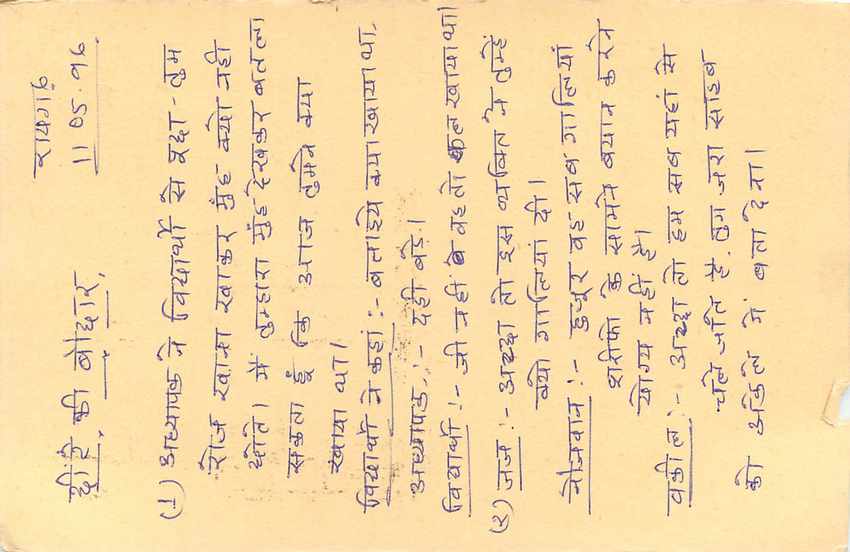 रायगढ़
11.05.96
दोहे की बौछार,
(1) अध्यापक ने विद्यार्थी से पूछा - तुम
रोज खाना खाकर मुंह क्यों नहीं
धोते। में तुम्हारा मुंह देखकर बतला
सकता हूँ कि आज तुमने क्या
खाया था।
विद्यार्थी ने कहां :- बताइये क्या खाया था,
अध्यापक :- दही बड़े।
विद्यार्थी :- जी नहीं वे वह तो कल खाया था।
(2) जज :- अच्छा तो इस व्यक्ति ने तुम्हें
क्यो गालियां दी।
नोजवान :- हुजूर वह सब गालियां
शरीफो के सामने बयान करने
योग्य नहीं हैं।
वकील :- अच्छा तो हम सब यहां से
चले जाते हैं. तुम जरा साहब
को अकेले में बता देना।